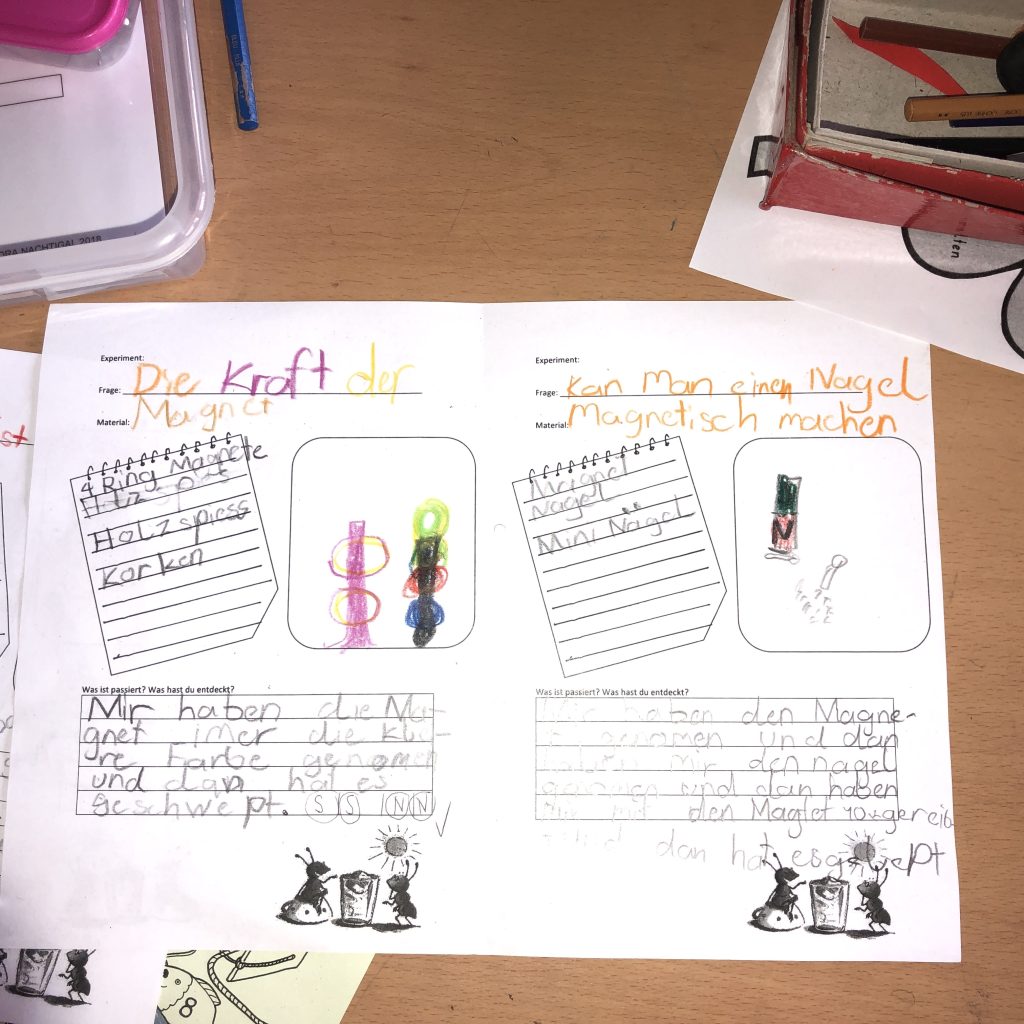 DRA NACHTIGAL 2018
st
8
Experiment:
Frage: Die Kraft der
Magnet
Material:
4 Ring Magnete
Holzspiess
Korken
Was ist passiert? Was hast du entdeckt?
Mir haben die Ma-
gnet imer die
re Farbe genomen
und dan hat es
geschwept. S S N N
Experiment:
Frage: Kan Man einen Nagel
Magnetisch machen
Material:
Magnet
Nagel
Mini Nägel
Was ist passiert? Was hast du entdeckt?
Mir haben den Magne-
t genomen und dan
haben mir den nagel
genomen und dan haben
mir mit den Magtet 10x gereib
und dan hat es